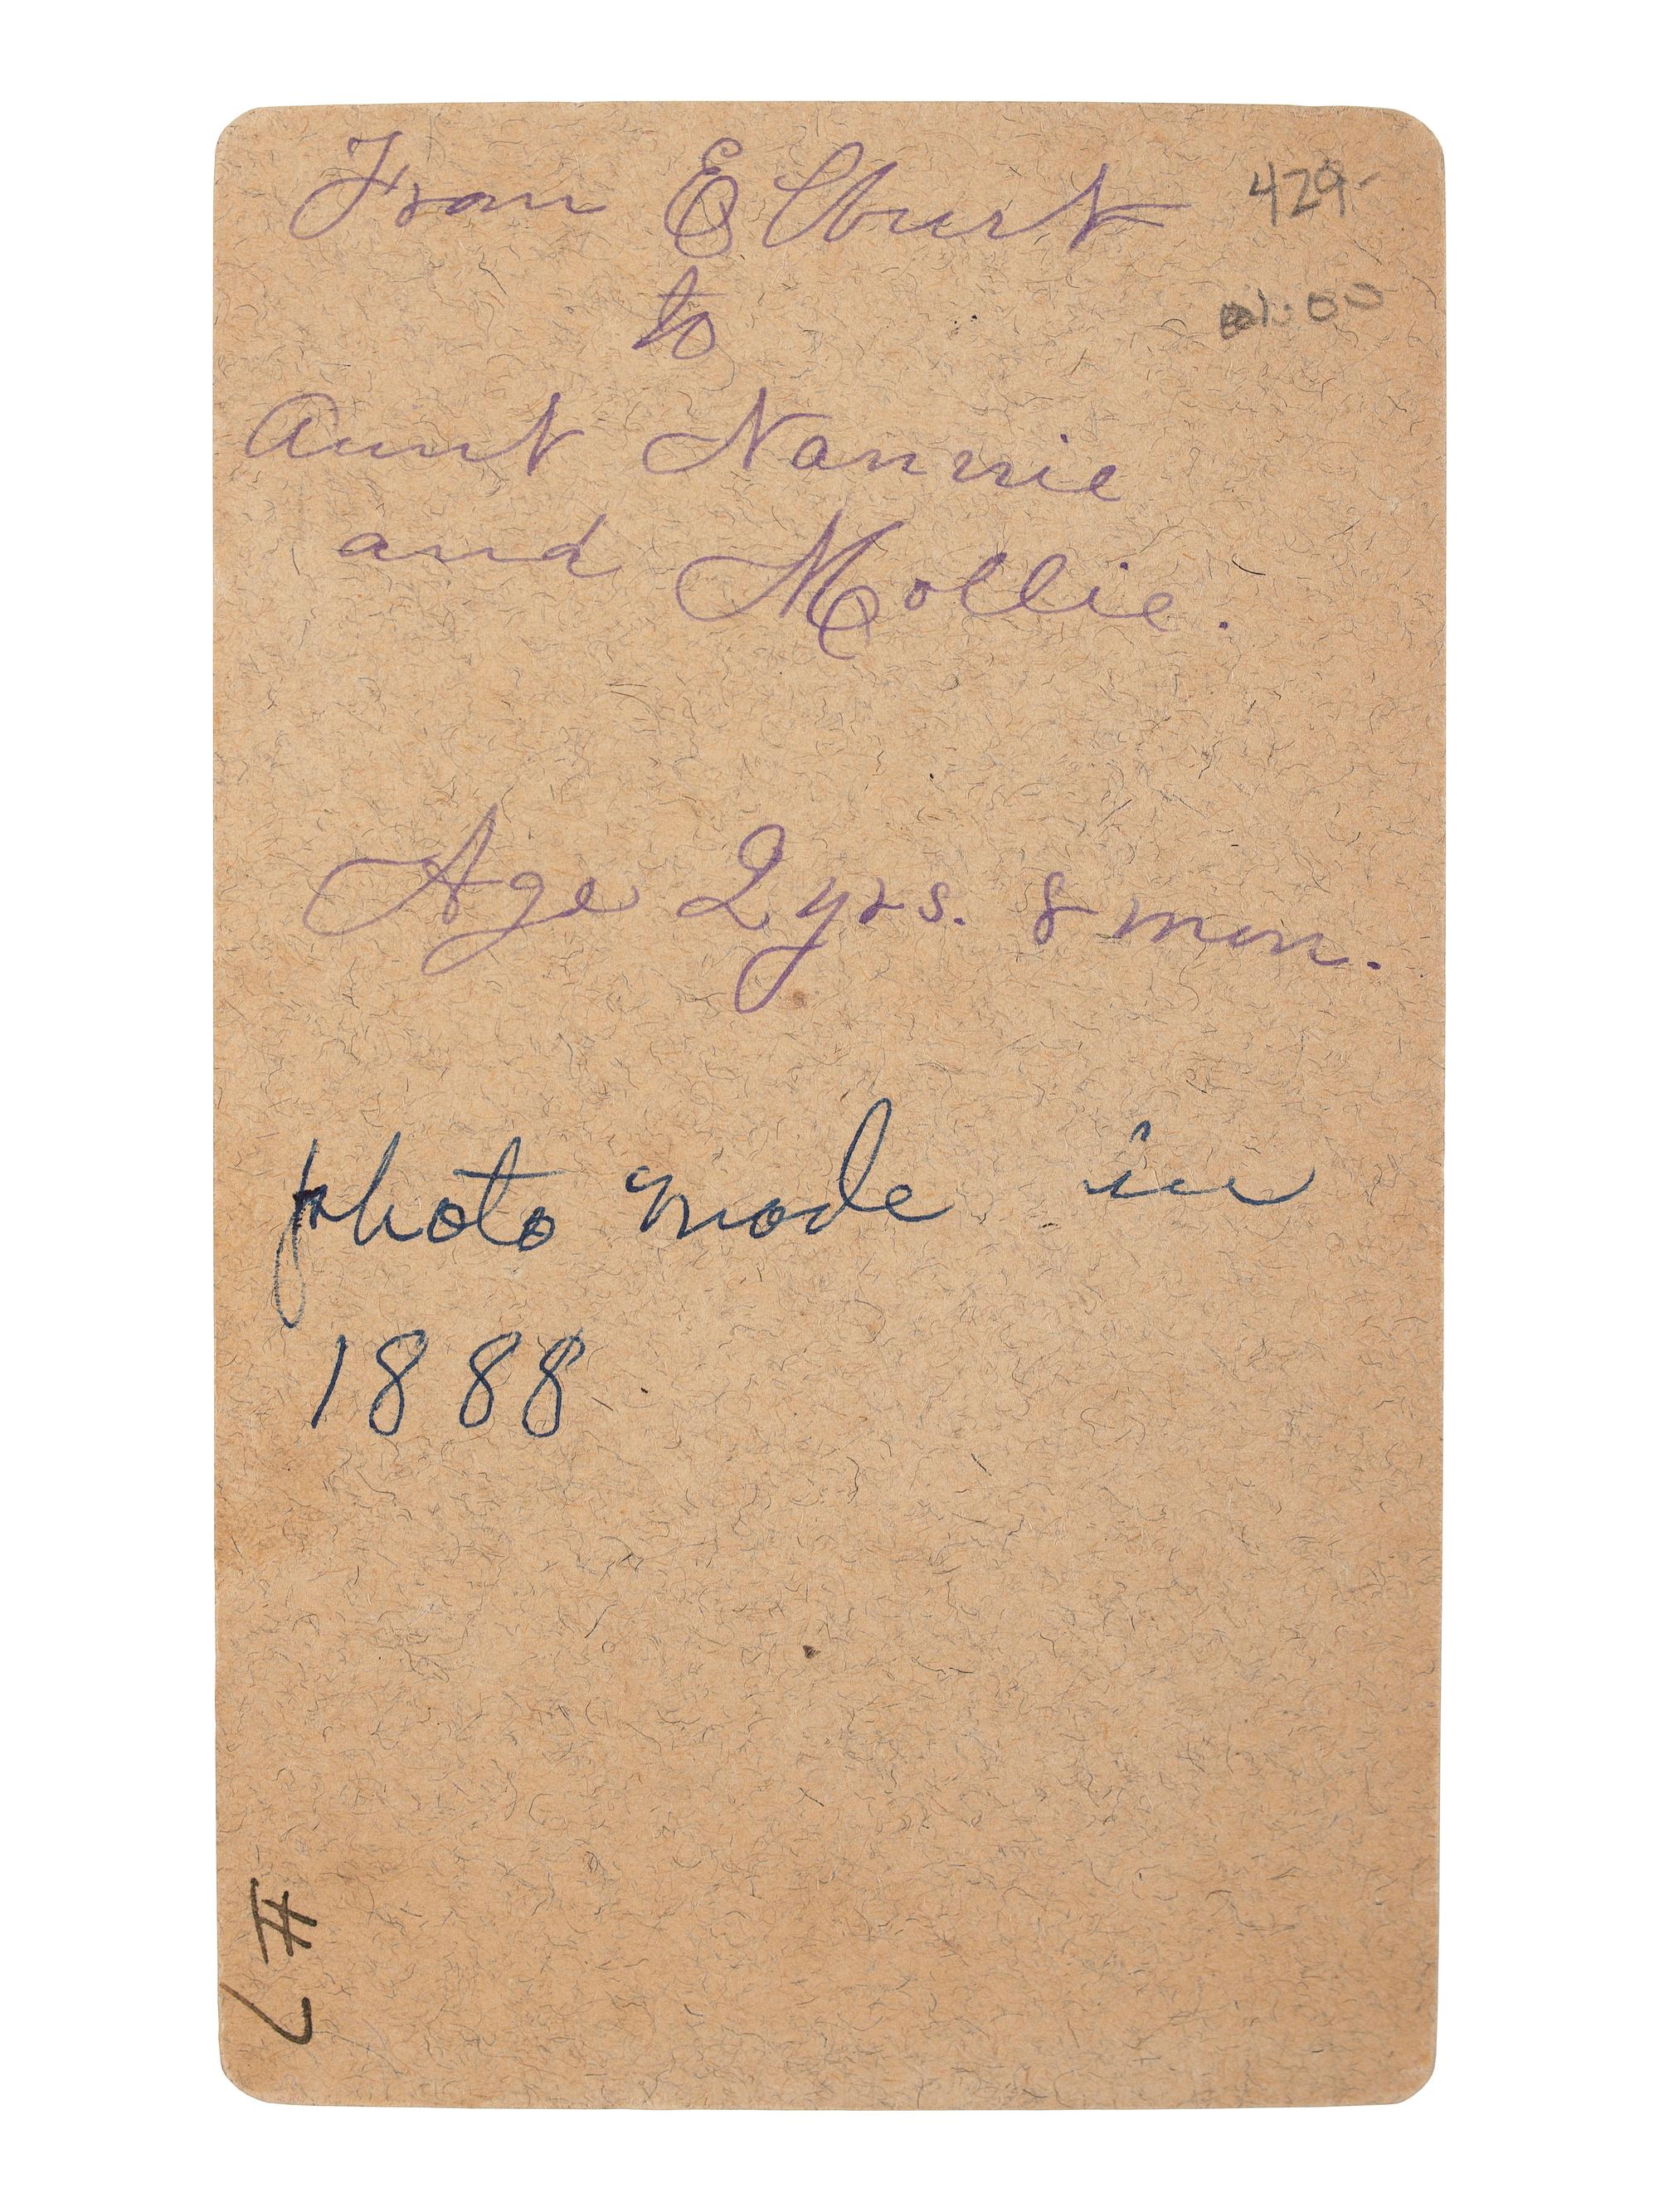 From Elburt
429-
to
Aunt Nannie
and Mollie.
Age 2 yrs. 8 mon.
photo made in
1888
#7